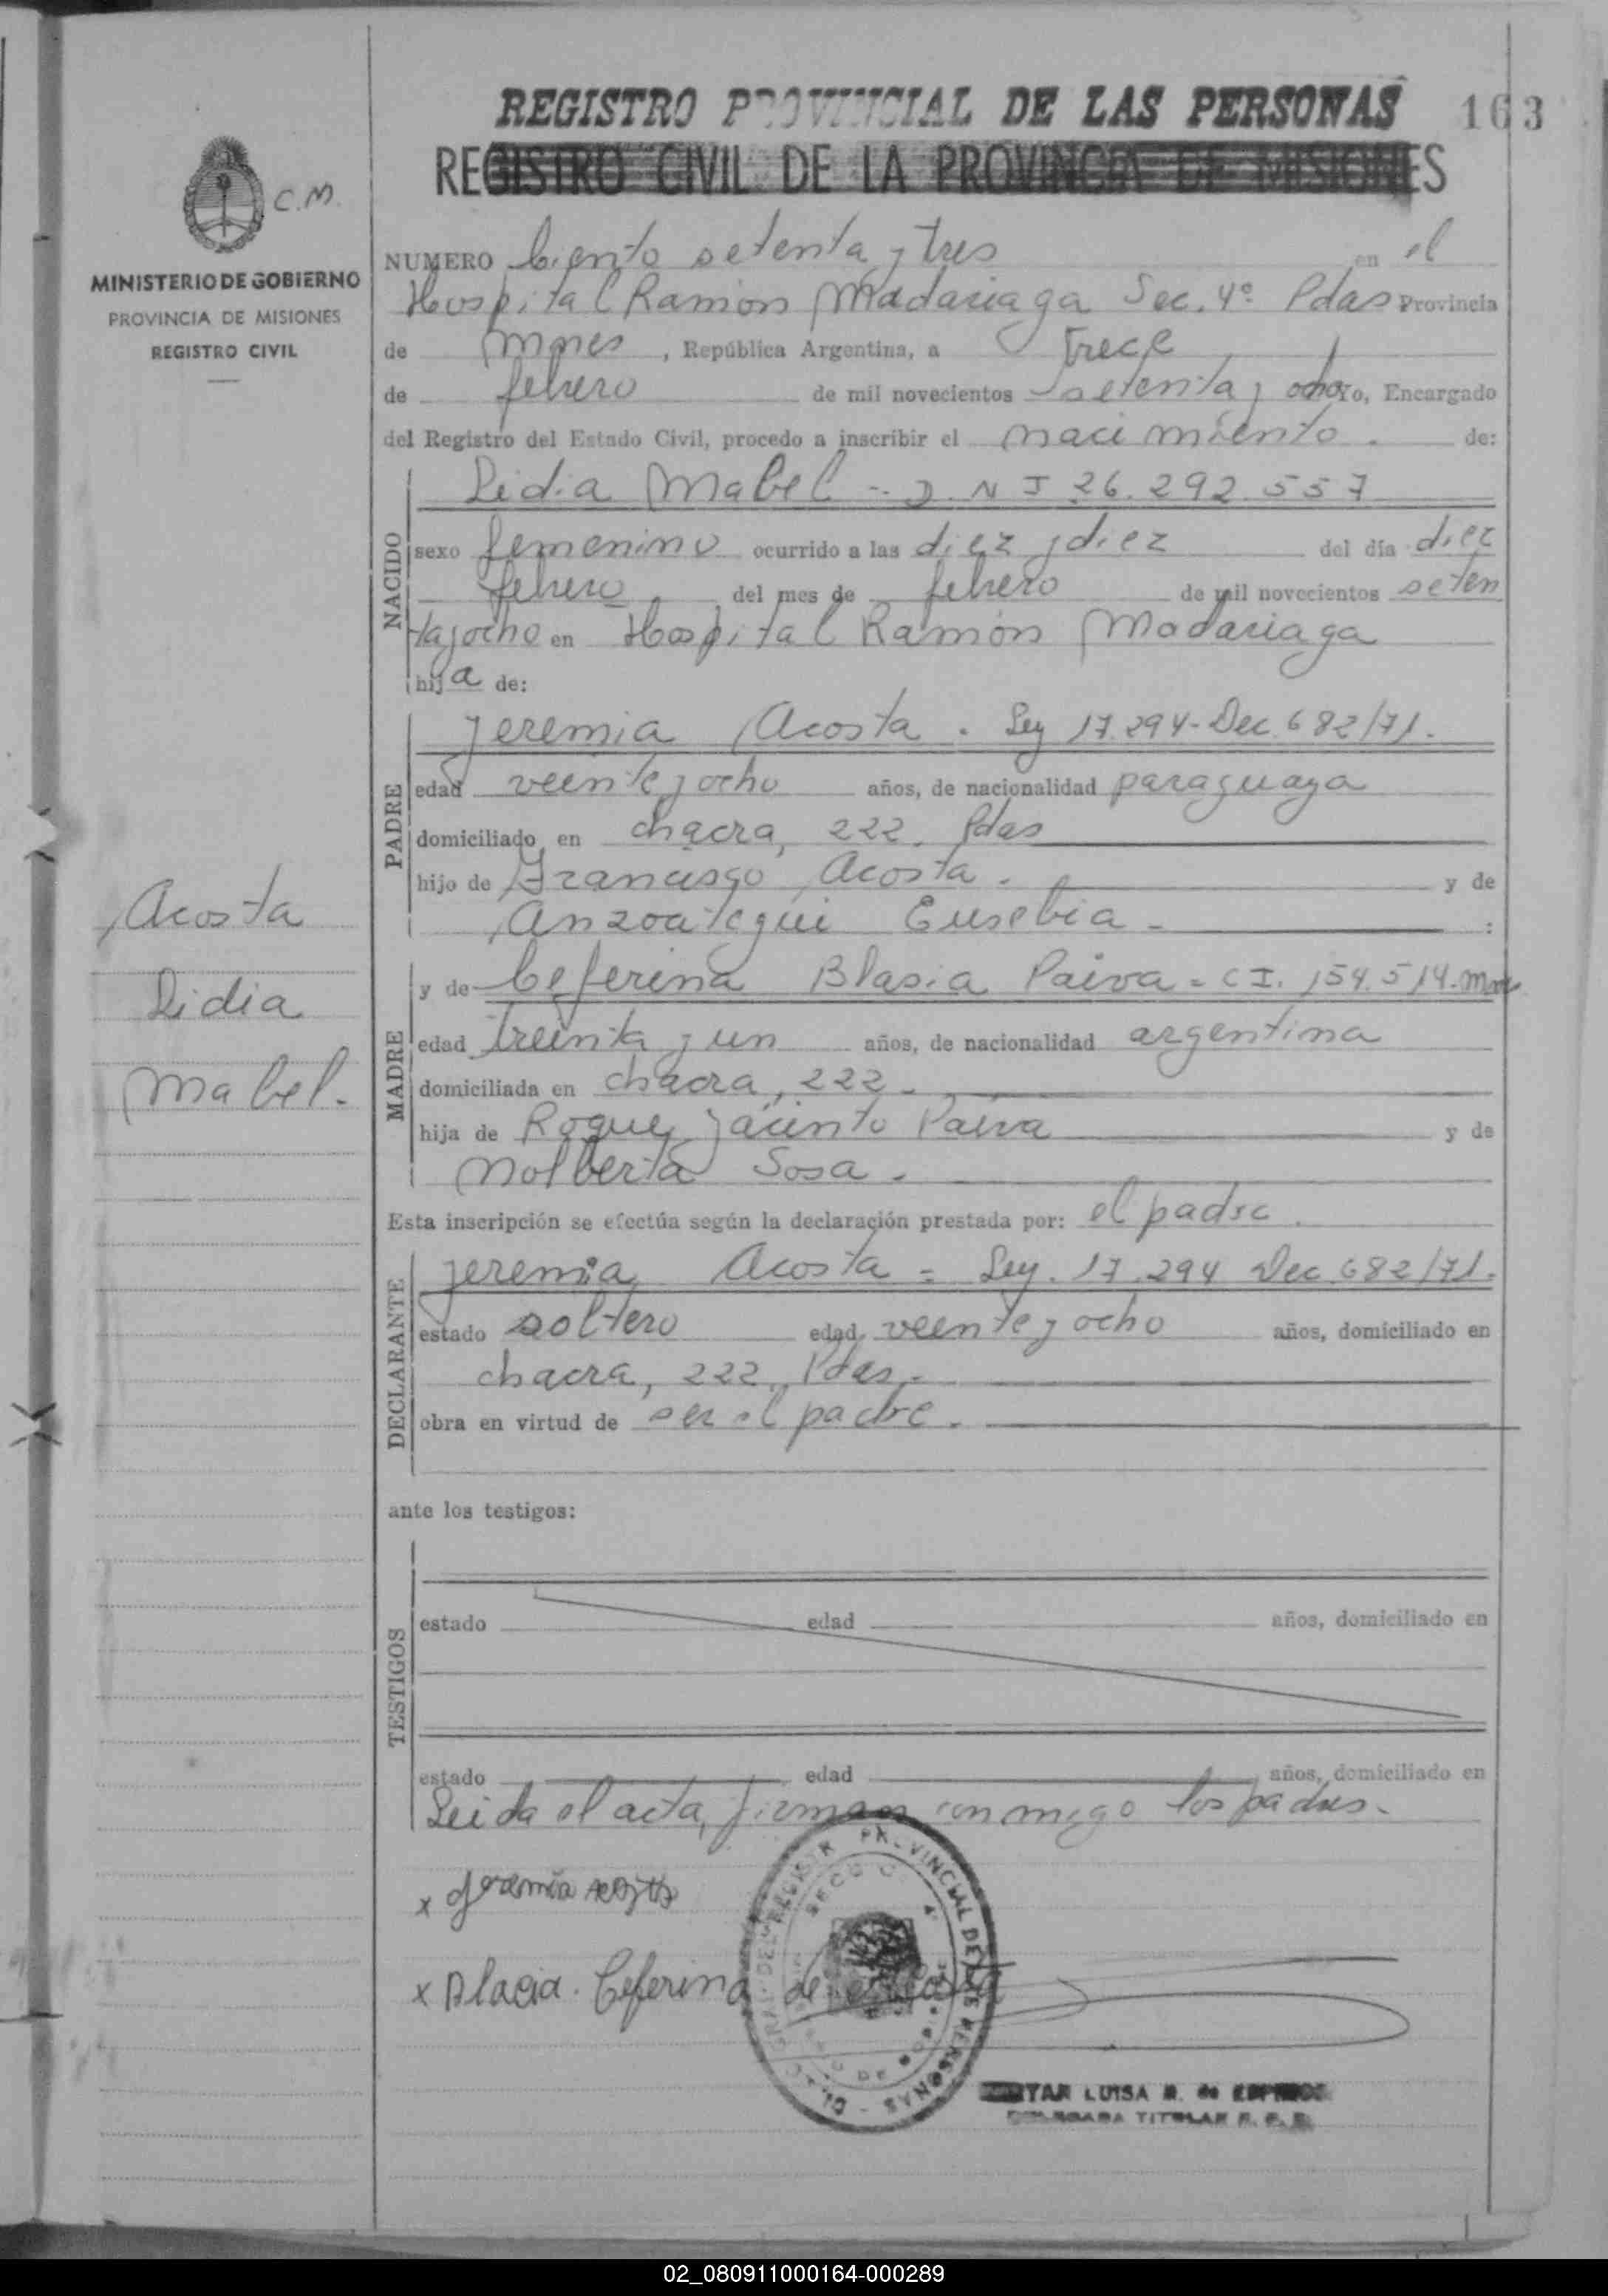 REGISTRO PROVINCIAL DE LAS PERSONAS 163
REGISTRO CIVIL DE LA PROVINCIA DE MISIONES
C.M.
MINISTERIO DE GOBIERNO
PROVINCIA DE MISIONES
REGISTRO CIVIL
NUMERO Ciento setenta y tres en el
Hospital Ramón Madariaga Sec. 4º Pdas Provincia
de Mnes, República Argentina, a trece
de febrero de mil novecientos setenta y ocho yo, Encargado
del Registro del Estado Civil, procedo a inscribir el nacimiento. de:
NACIDO
Lidia Mabel - D N I 26.292.557
sexo femenino ocurrido a las diez y diez del día diez
febrero del mes de febrero de mil novecientos seten
ta y ocho en Hospital Ramón Madariaga
hija de:
PADRE
Jeremia Acosta. Ley 17.294-Dec. 682/71.
edad veinte y ocho años, de nacionalidad paraguaya
domiciliado en chacra, 222. Pdas
hijo de Francisco Acosta. y de
Anzoategui Eusebia - :
Acosta
Lidia
Mabel.
MADRE
y de Ceferina Blasia Paiva = C I. 154.514. Mnes
edad treinta y un años, de nacionalidad argentina
domiciliada en chacra, 222.
hija de Roque Jacinto Paiva y de
Nolberta Sosa.
Esta inscripción se efectúa según la declaración prestada por: el padre.
DECLARANTE
Jeremia Acosta = Ley. 17.294 Dec. 682/71.
estado soltero edad veinte y ocho años, domiciliado en
chacra, 222. Pdas.
obra en virtud de ser el padre.
ante los testigos:
TESTIGOS
estado edad años, domiciliado en
estado edad años, domiciliado en
Leida el acta, firman conmigo los padres.
x Jeremia Acosta
x Blacia. Ceferina de Acosta
PROVINCIAL DE LAS PERSONAS
LUISA
TITULAR
02_080911000164-000289